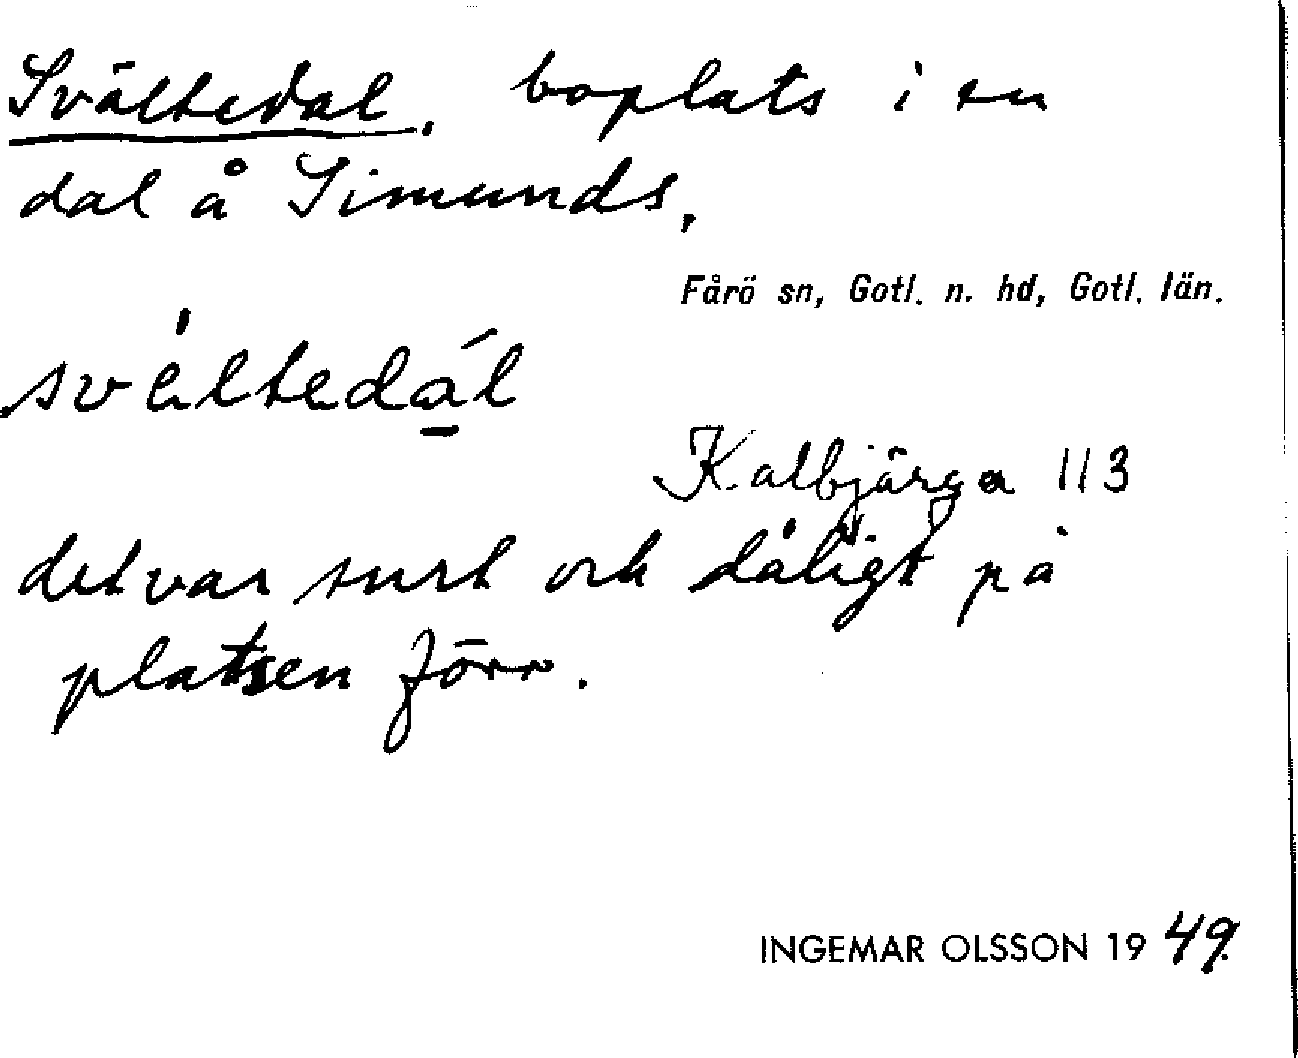 Svältedal, boplats i en
dal å Simunds,
Fårö sn, Gotl. n. hd, Gotl. län.
svältedál
Kalbjärga 113
det var surt och dåligt på
platsen förr.
INGEMAR OLSSON 1949